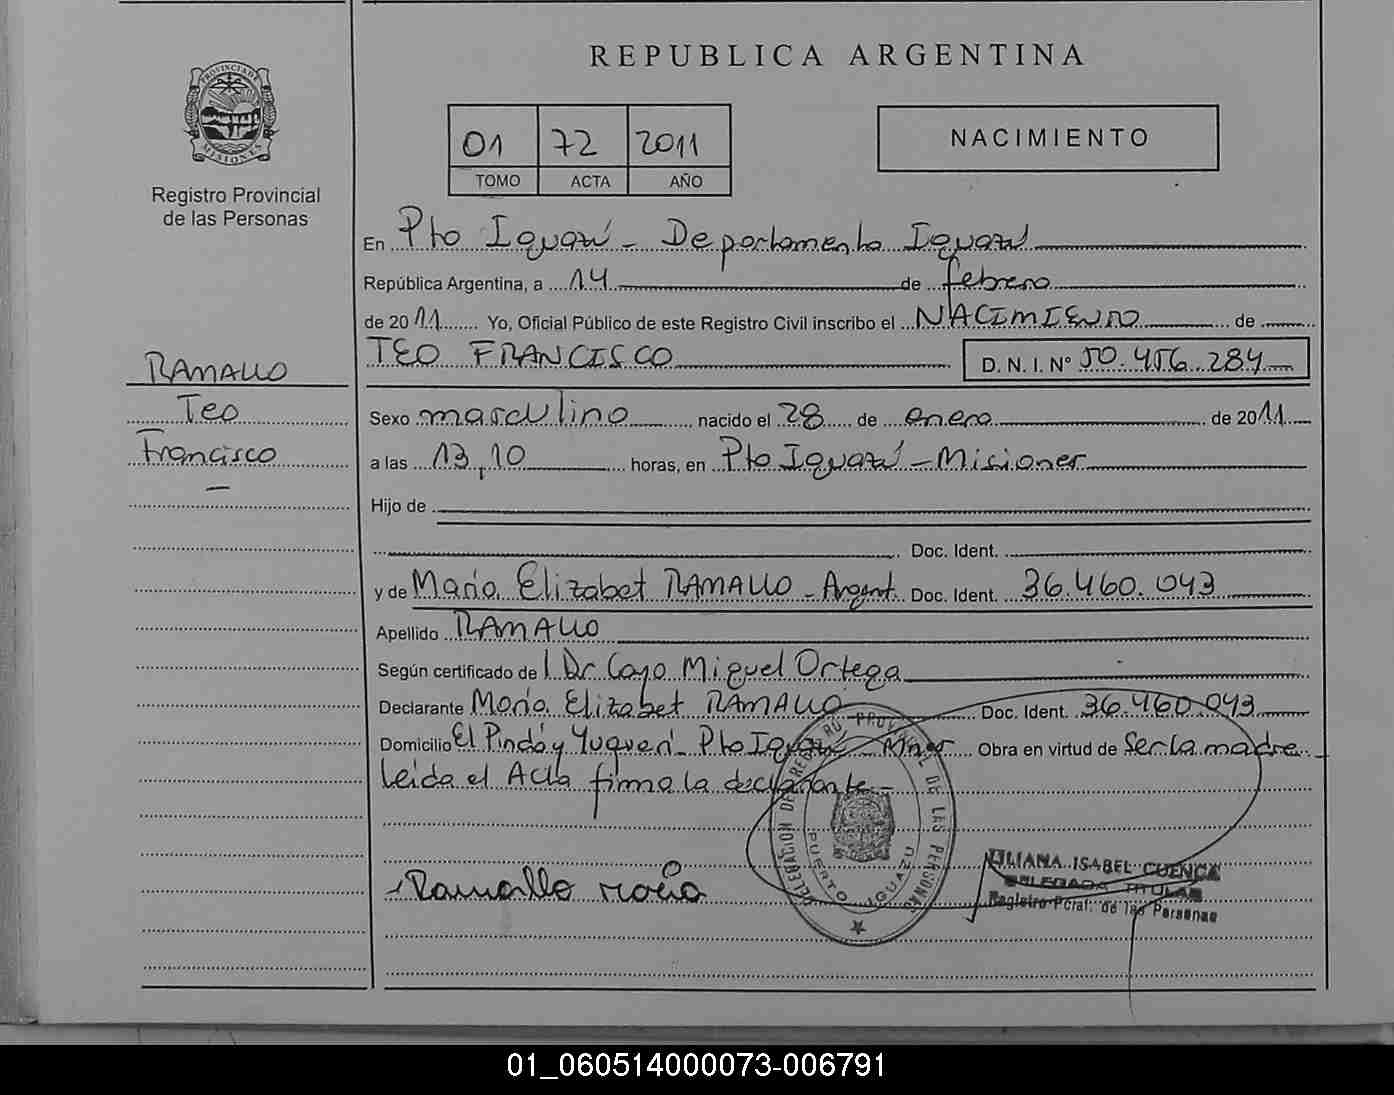 REPUBLICA ARGENTINA
PROVINCIA DE
MISIONES
Registro Provincial
de las Personas
01 72 2011
TOMO ACTA AÑO
NACIMIENTO
En Pto Iguazú - Departamento Iguazú
República Argentina, a 14 de febrero
de 2011 Yo, Oficial Público de este Registro Civil inscribo el NACIMIENTO de
TEO FRANCISCO D. N. I. Nº 50.456.284
RAMALLO
Teo
Francisco
Sexo masculino nacido el 28 de enero de 2011
a las 13,10 horas, en Pto Iguazú - Misiones
Hijo de
Doc. Ident.
y de María Elizabet RAMALLO - Argent. Doc. Ident. 36.460.043
Apellido RAMALLO
Según certificado de l Dr Cayo Miguel Ortega
Declarante María Elizabet RAMALLO Doc. Ident. 36.460.043
Domicilio El Pindó y Yuquerí - Pto Iguazú - Mnes Obra en virtud de Ser la madre
Leida el Acta firma la declarante -
DELEGACION DEL REG PROVINCIAL DE LAS PERSONAS
PUERTO IGUAZU
Ramallo María
LILIANA ISABEL CUENCA
DELEGADA TITULAR
Registro Pcial. de las Personas
01_060514000073-006791